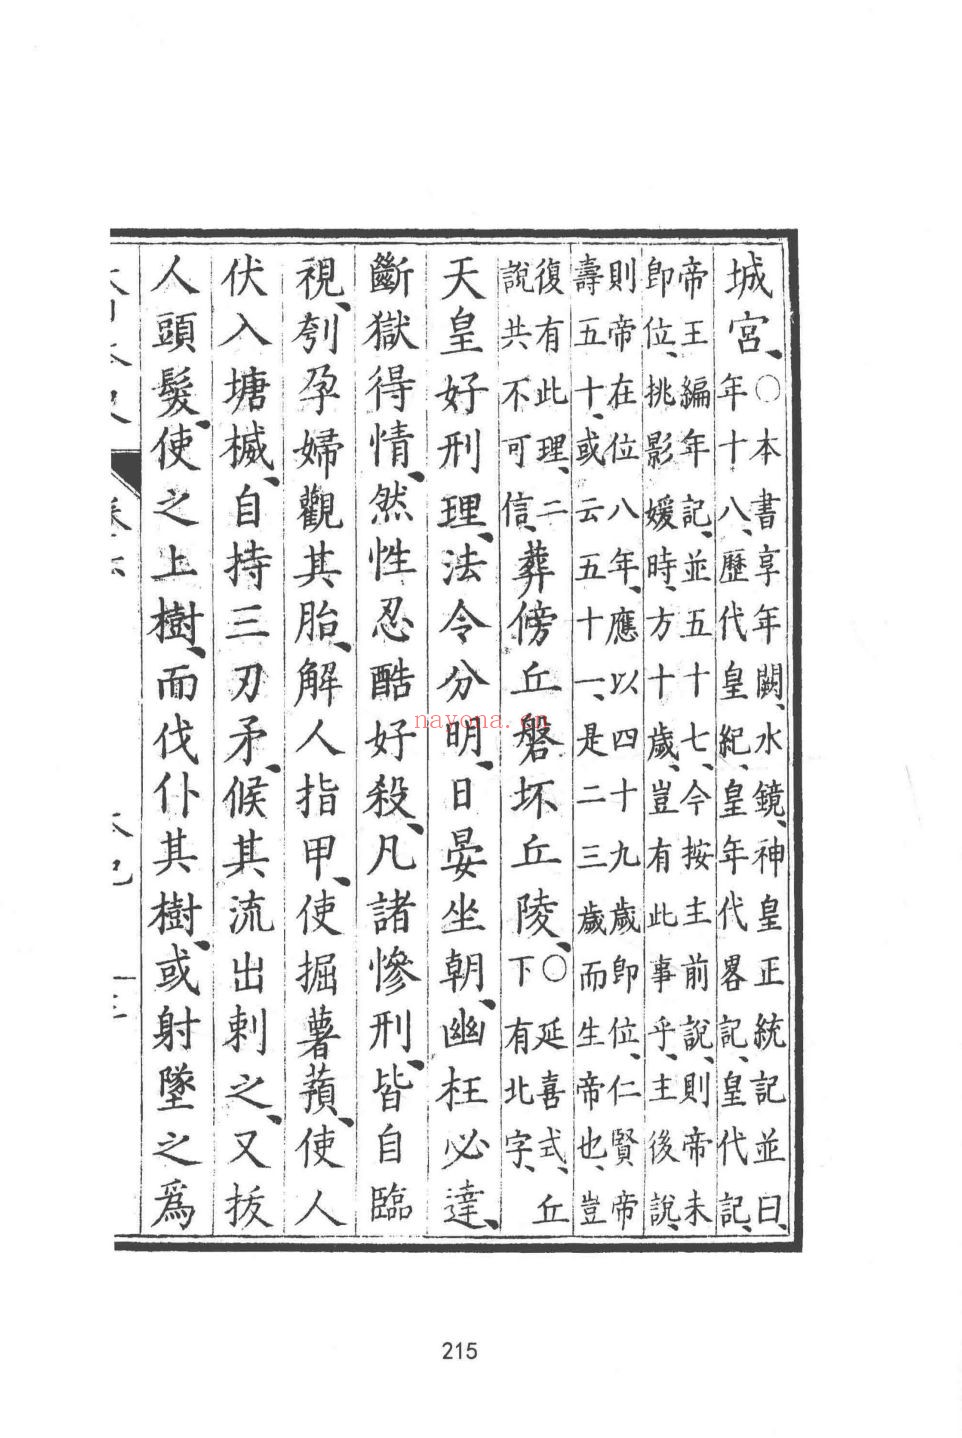 城宮、○本書享年闕、水鏡、神皇正統記並曰、
年十八、歷代皇紀、皇年代畧記、皇代記、
帝王編年記、並五十七、今按主前說、則帝未
即位、挑影媛時、方十歲、豈有此事乎、主後說、
則帝在位八年、應以四十九歲即位、仁賢帝
壽五十、或云五十一、是二三歲而生帝也、豈
復有此理、二
說共不可信、葬傍丘磐坏丘陵、○延喜式、丘
下有北字、
天皇好刑理、法令分明、日晏坐朝、幽枉必達、
斷獄得情、然性忍酷好殺、凡諸慘刑、皆自臨
視、刳孕婦觀其胎、解人指甲、使掘薯蕷、使人
伏入塘楲、自持三刃矛、候其流出刺之、又拔
人頭髮、使之上樹、而伐仆其樹、或射墜之爲
nayona.cn
215